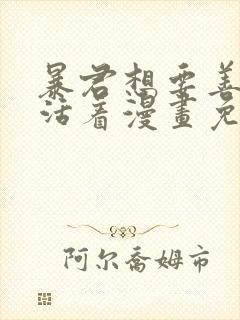 暴君想要善
活着漫畫免
阿尔喬姆市